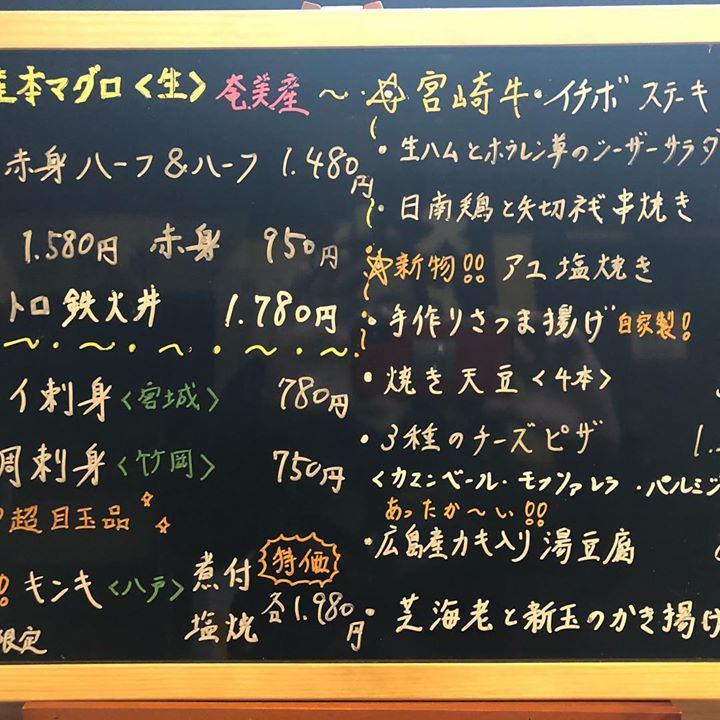 本マグロ〈生〉奄美産
赤身ハーフ&ハーフ 1.480円
1.580円 赤身 950円
トロ鉄火丼 1.780円
イ刺身〈宮城〉 780円
刺身〈竹岡〉 750円
超目玉品
!! キンキ〈八戸〉 煮付 塩焼 特価 各1.980円
限定
宮崎牛・イチボステーキ
・生ハムとホウレン草のシーザーサラダ
・日南鶏と矢切ネギ串焼き
新物!! アユ塩焼き
・手作りさつま揚げ 自家製!
・焼き天豆〈4本〉
・3種のチーズピザ 1.
〈カマンベール・モッツァレラ・パルミジ
あったか〜い!!
・広島産カキ入り湯豆腐
・芝海老と新玉のかき揚げ